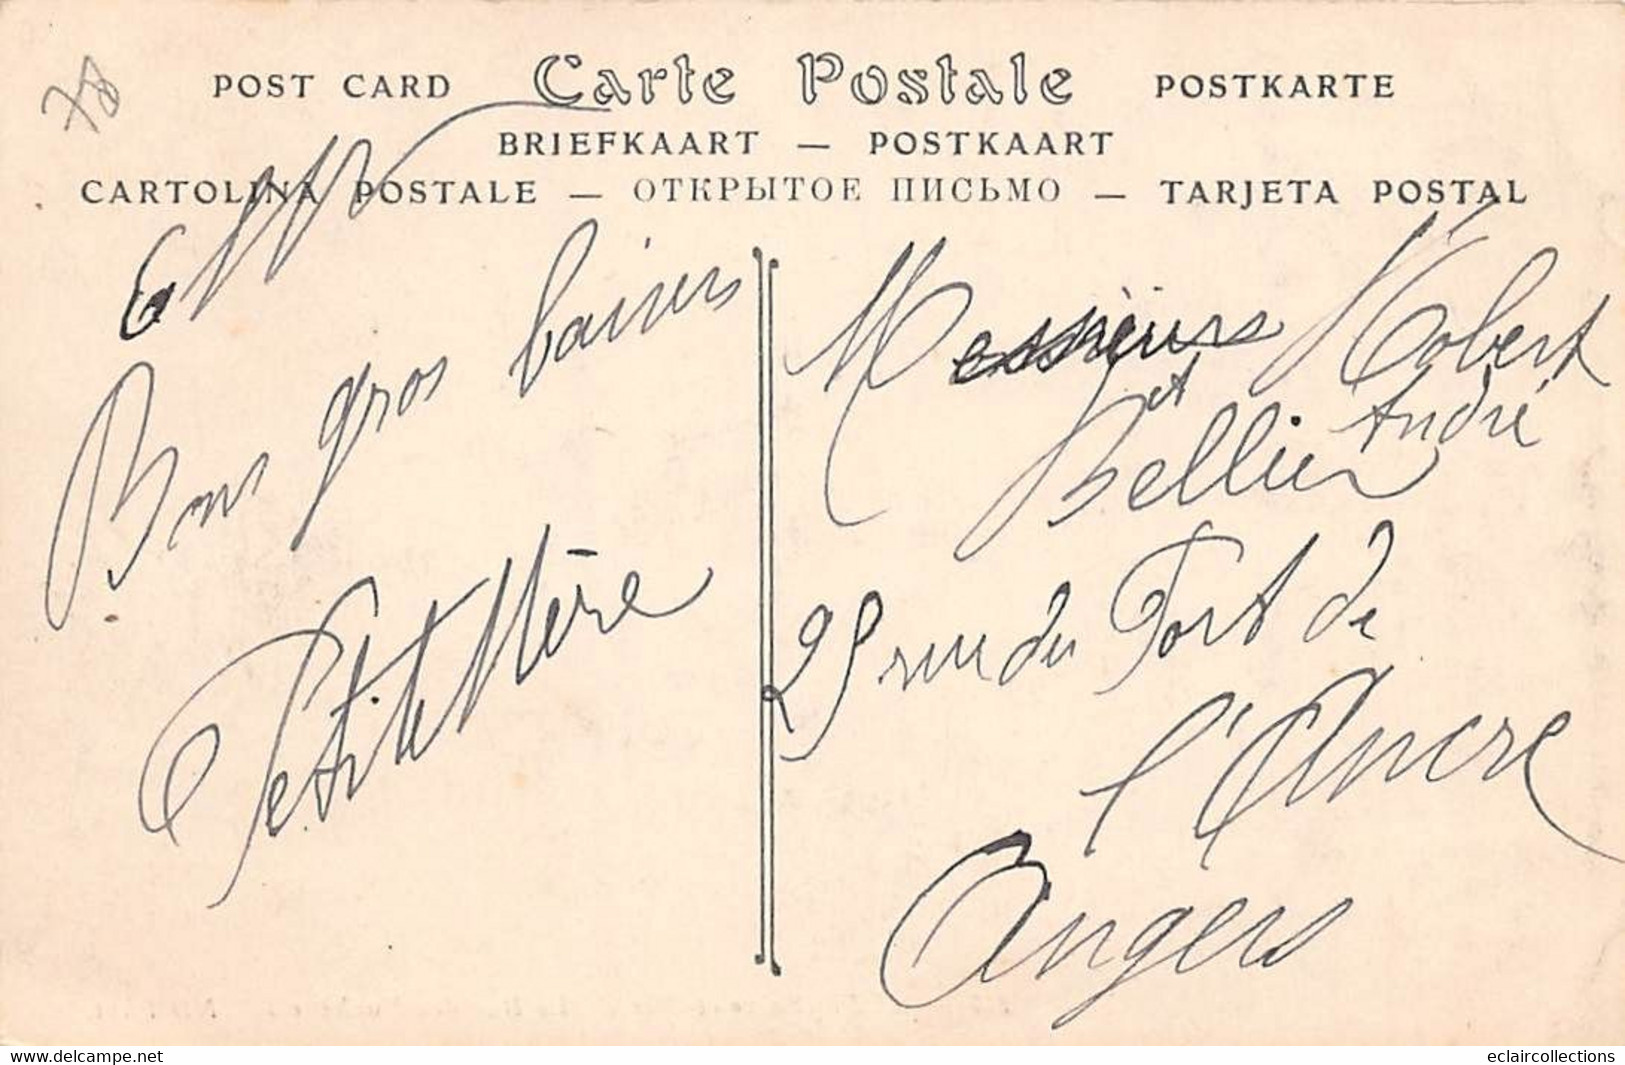 78
POST CARD Carte Postale POSTKARTE
BRIEFKAART — POSTKAART
CARTOLINA POSTALE — ОТКРЫТОЕ ПИСЬМО — TARJETA POSTAL
Bons gros baisers
Petite Mère
Messieurs Robert
et André
Bellier
25 rue du Port de
l'Ancre
Angers
www.delcampe.net
eclaircollections